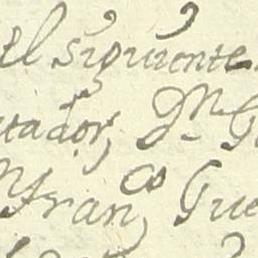 el siguiente
tador, Dn. G
n fran,co Gue